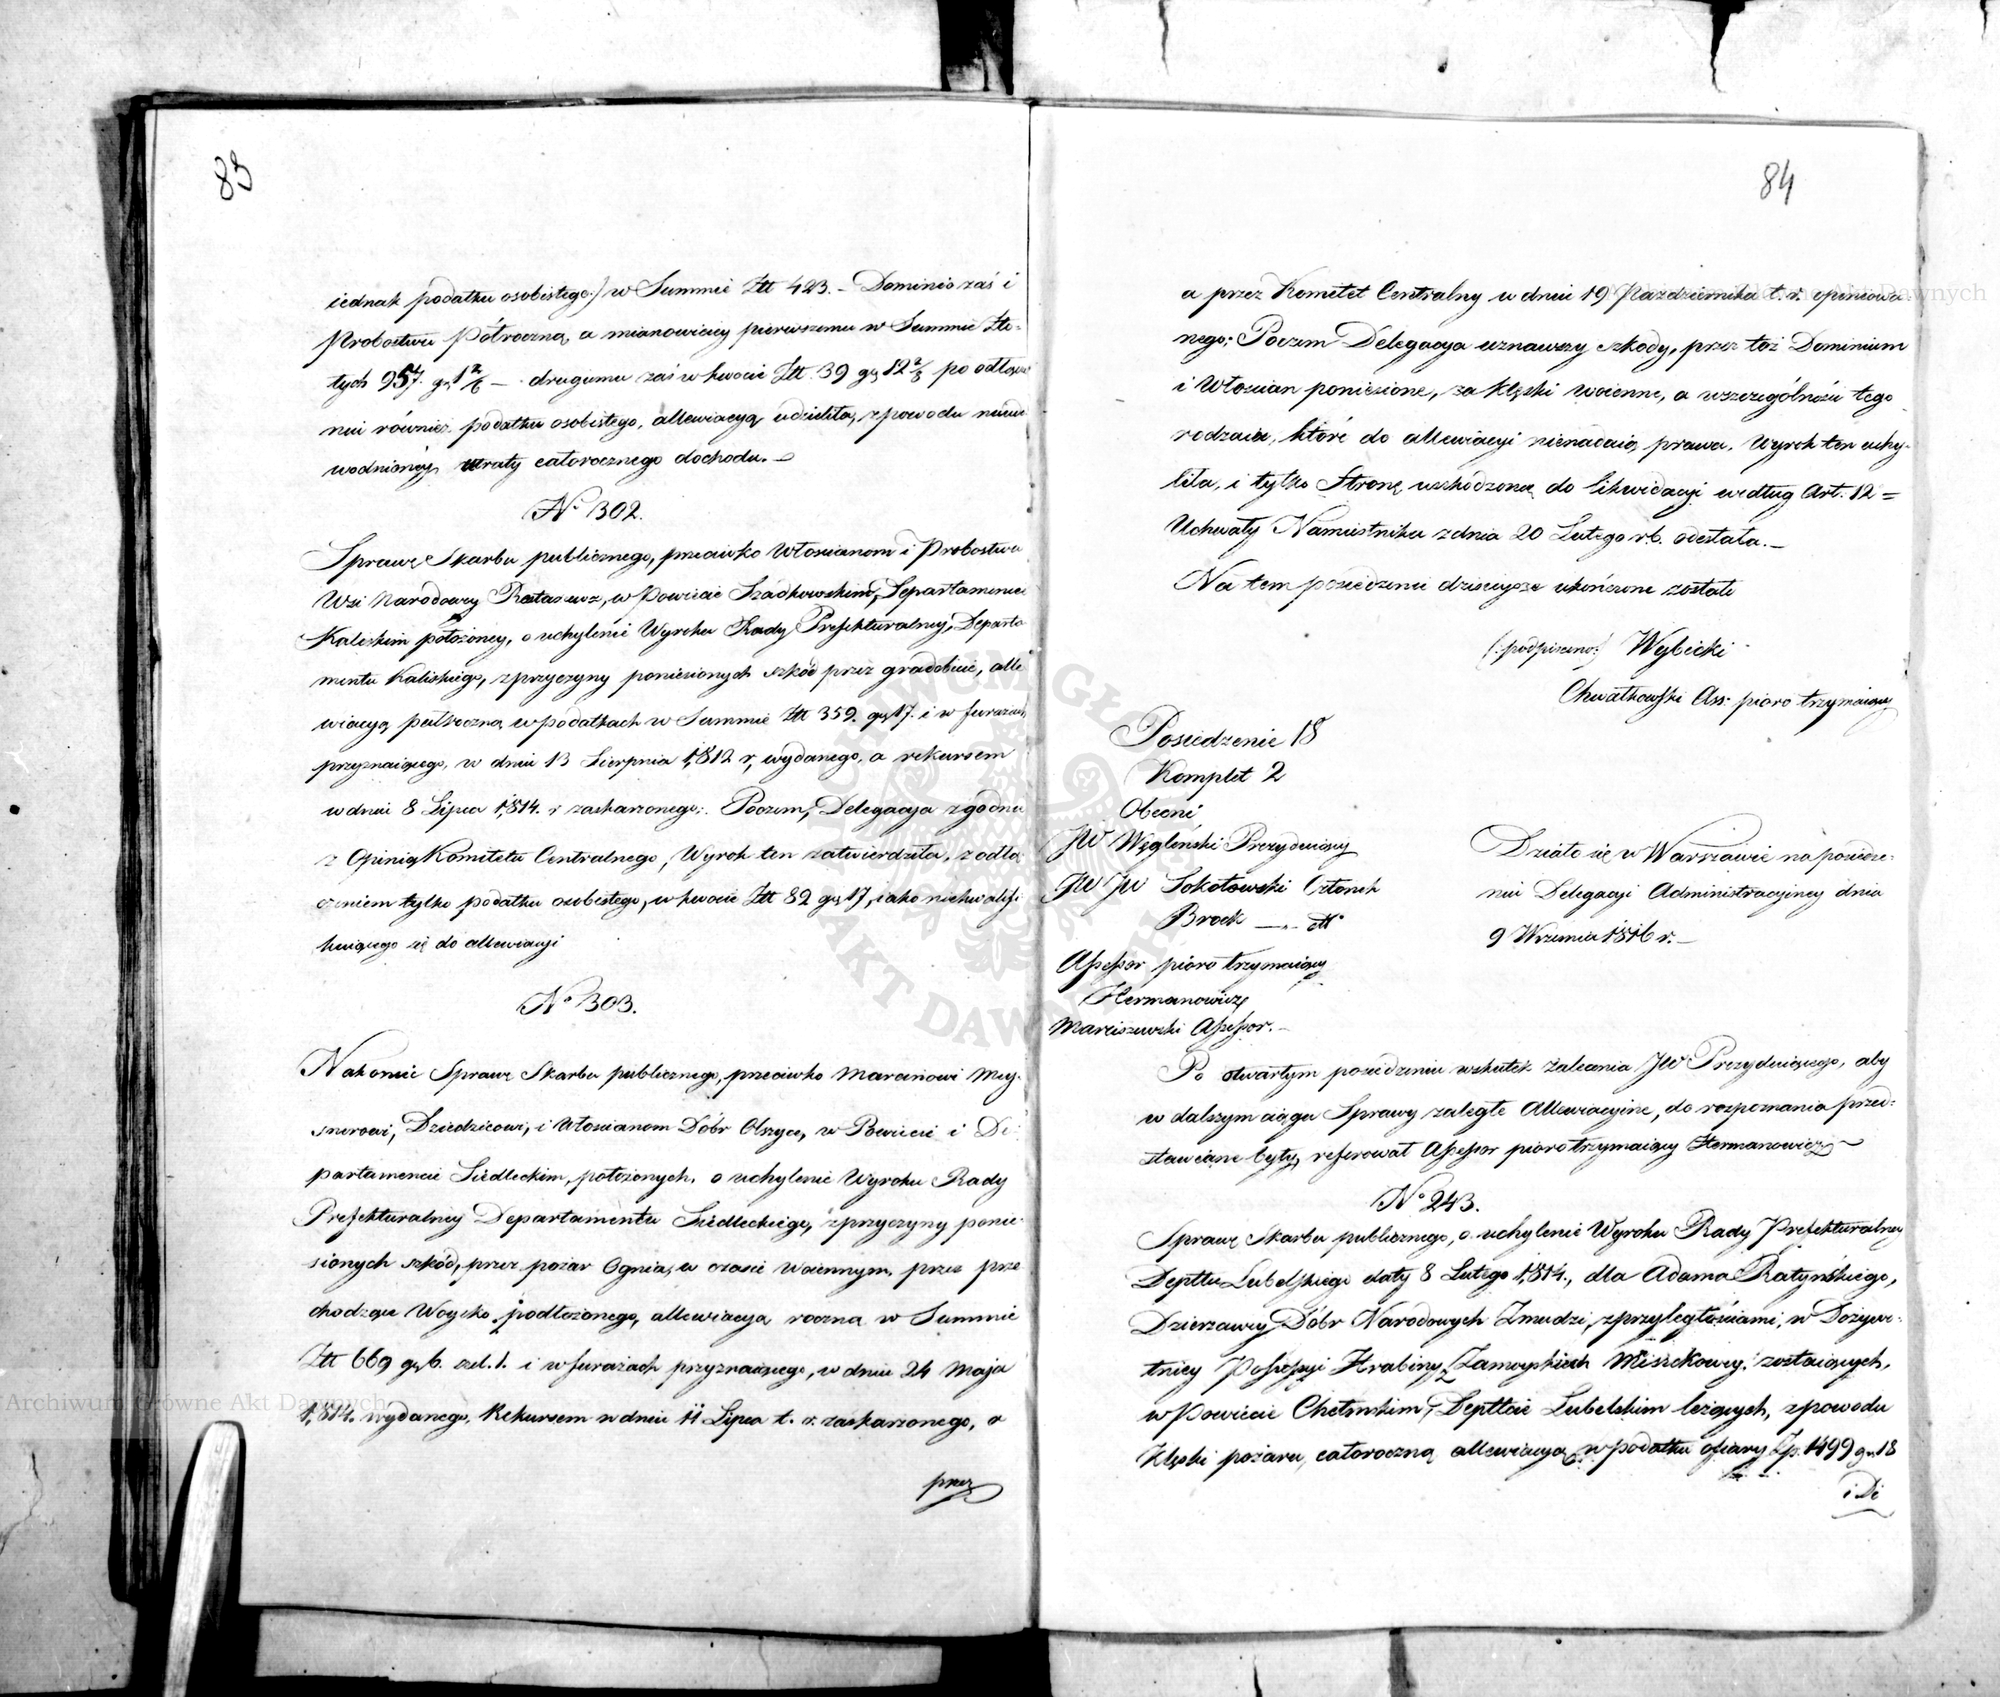 83
iednak podatku osobistego:/ w Summie Ztt 423. – Dominio zaś i
Probostwu Półroczną, a mianowicie pierwszemu w Summie Zło-
tych 957. gr 1 2/6 – drugiemu zaś w kwocie Ztt. 39 gr 12 2/3 po odłącze
niu również podatku osobistego, allewiacyą udzieliła, z powodu nieudo
wodnionéy utraty całorocznego dochodu. –
No 302.
Sprawę Skarbu publicznego, przeciwko Włościanom i Probostwu
Wsi Narodowey, w Powiecie Szadkowskim, Departamencie
Kaliskim położoney, o uchylenie Wyroku Rady Prefekturalney, Departa
mentu Kaliskiego, z przyczyny poniesionych szkód przez gradobicie, alle
wiacyą półroczną w podatkach w Summie Ztt 359. gr 17. i w furażach
przyznaiącego, w dniu 13 Sierpnia 1812 r, wydanego, a rekursem
w dniu 8 Lipca 1814. r zaskarżonego: Poczem, Delegacya zgodnie
z Opinią Komitetu Centralnego, Wyrok ten zatwierdziła, z odłą
czeniem tylko podatku osobistego, w kwocie Ztt 82 gr 17, iako niekwalifi
kuiącego się do allewiacyi
No 303.
Nakoniec Sprawę Skarbu publicznego, przeciwko Marcinowi Mey-
snerowi, Dziedzicowi, i Włościanom Dóbr Olszyc, w Powiecie i De
partamencie Siedleckim, położonych, o uchylenie Wyroku Rady
Prefekturalney Departamentu Siedleckiego, z przyczyny ponie-
sionych szkód, przez pożar Ognia, w czasie Woiennym, przez prze
chodzące Woysko podłożonego, allewiacya roczna w Summie
Ztt 669 gr 6. szel. 1. i w furażach przyznaiącego, w dniu 24 Maja
1814. wydanego, Rekursem w dniu 11 Lipca t. r. zaskarżonego, a
przez
84
a przez Komitet Centralny w dniu 19 Października t. r. opiniowa-
nego; Poczem Delegacya uznawszy szkody, przez toż Dominium
i Włościan poniesione, za klęski woienne, a w szczególności tego
rodzaiu, które do allewiacyi nienadaią prawa, Wyrok ten uchy-
liła, i tylko Stronę uszkodzoną do likwidacyi według Art. 12 =
Uchwały Namiestnika z dnia 20 Lutego r. b. odesłała. –
Na tem posiedzenie dzisieysze ukończone zostało
(:podpisano:) Wybicki
Chwałkowski Ass: pióro trzymaiący
Posiedzenie 18
Komplet 2
Obecni
JW Węgleński Prezyduiący
JW JW Sokołowski Członek
Brock –"– dtto
Assessor pióro trzymaiący
Hermanowicz
Marciszewski Assessor. –
Działo się w Warszawie na posiedze-
niu Delegacyi Administracyiney dnia
9 Września 1816 r. –
Po otwartym posiedzeniu wskutek zalecenia JW Prezyduiącego, aby
w dalszym ciągu Sprawy zaległe Allewiacyine, do rozpoznania przed-
stawiane były, referował Assessor pióro trzymaiący Hermanowicz
No 243.
Sprawę Skarbu publicznego, o uchylenie Wyroku Rady Prefekturalney
Depttu Lubelskiego daty 8 Lutego 1814., dla Adama Ratyńskiego,
Dzierzawcy Dóbr Narodowych Żmudzi, z przyległościami, w Dożywo-
tniey Possessyi Hrabiny Zamoyskiech Mirzekowey: zostaiących,
w Powiecie Chełmskim, Depttcie Lubelskim leżących, z powodu
Klęski pożaru, całoroczną allewiacyą w podatku ofiary Zp. 1499 gr 18
i De
Archiwum Główne Akt Dawnych
Archiwum Główne Akt Dawnych
ARCHIWUM GŁÓWNE AKT DAWNYCH